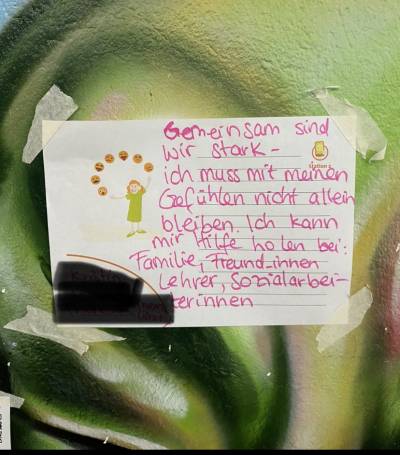 Gemeinsam sind
wir stark -
ich muss mit meinen
Gefühlen nicht allein
bleiben. Ich kann
mir Hilfe holen bei:
Familie, Freund_innen
Lehrer, Sozialarbei-
terinnen